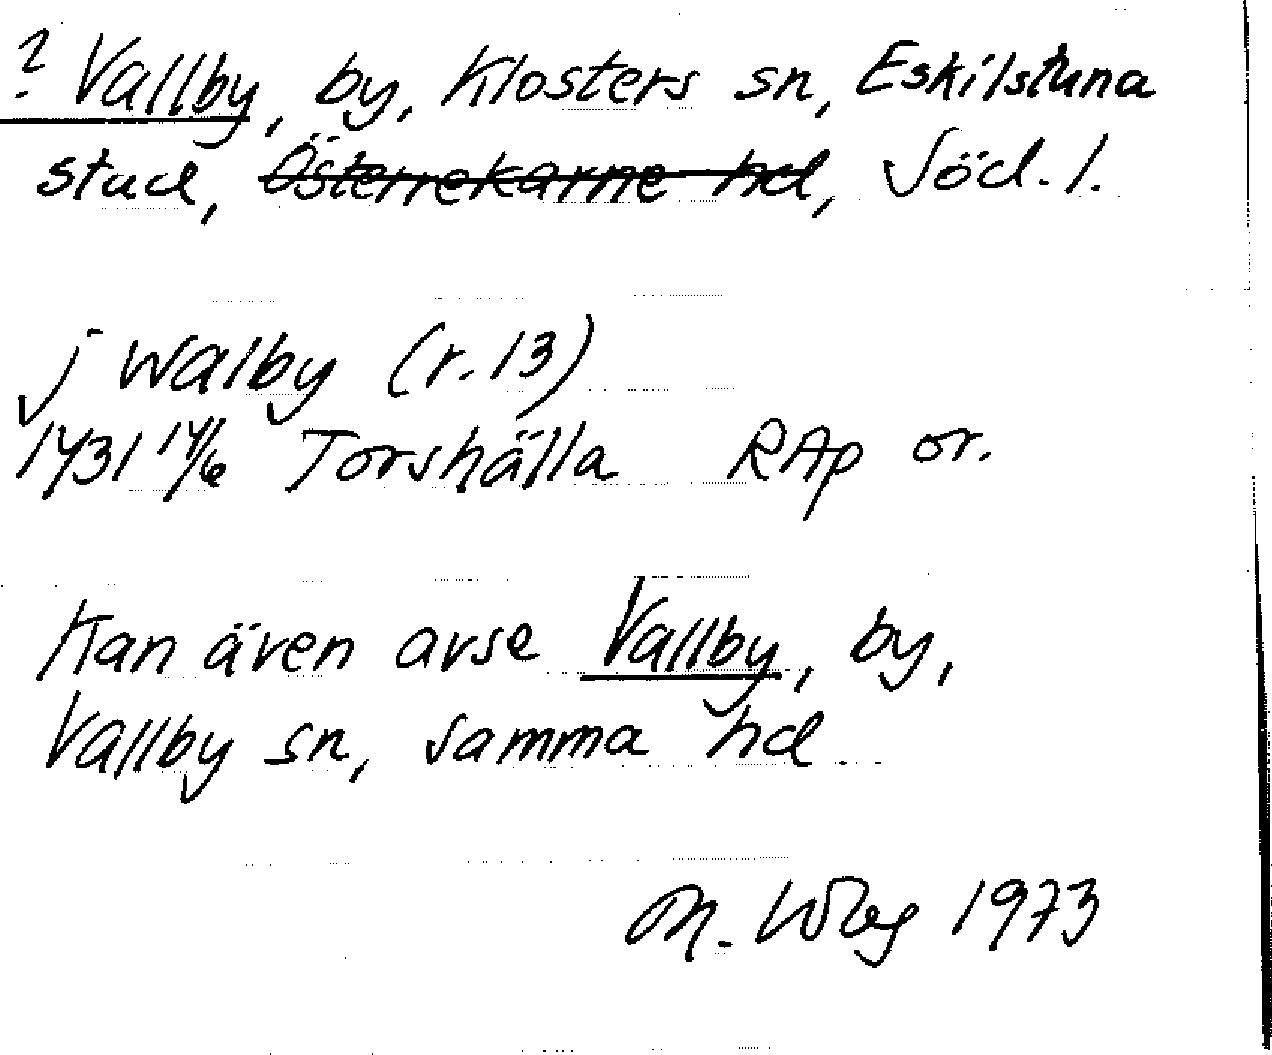 ? Vallby, by, Klosters sn, Eskilstuna
stad, Österrekarne hd, Söd. l.
j walby (r. 13)
1431 14/6 Torshälla RAp or.
Kan även avse Vallby, by,
Vallby sn, samma hd
M. Wbg 1973